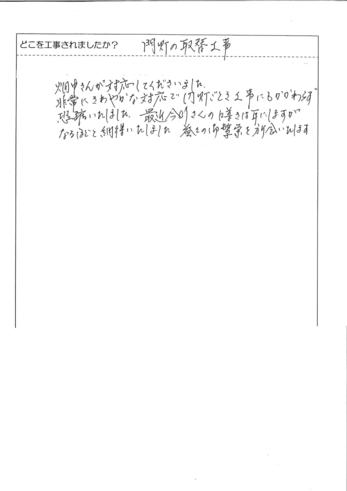 どこを工事されましたか？ 門灯の取替工事
畑中さんが対応してくださいました
非常にさわやかな対応で門灯ごとき工事にもかかわらず
恐縮いたしました 最近今村さんの仕事は耳にしますが
なるほどと納得いたしました 益々の御繁栄を祈念いたします